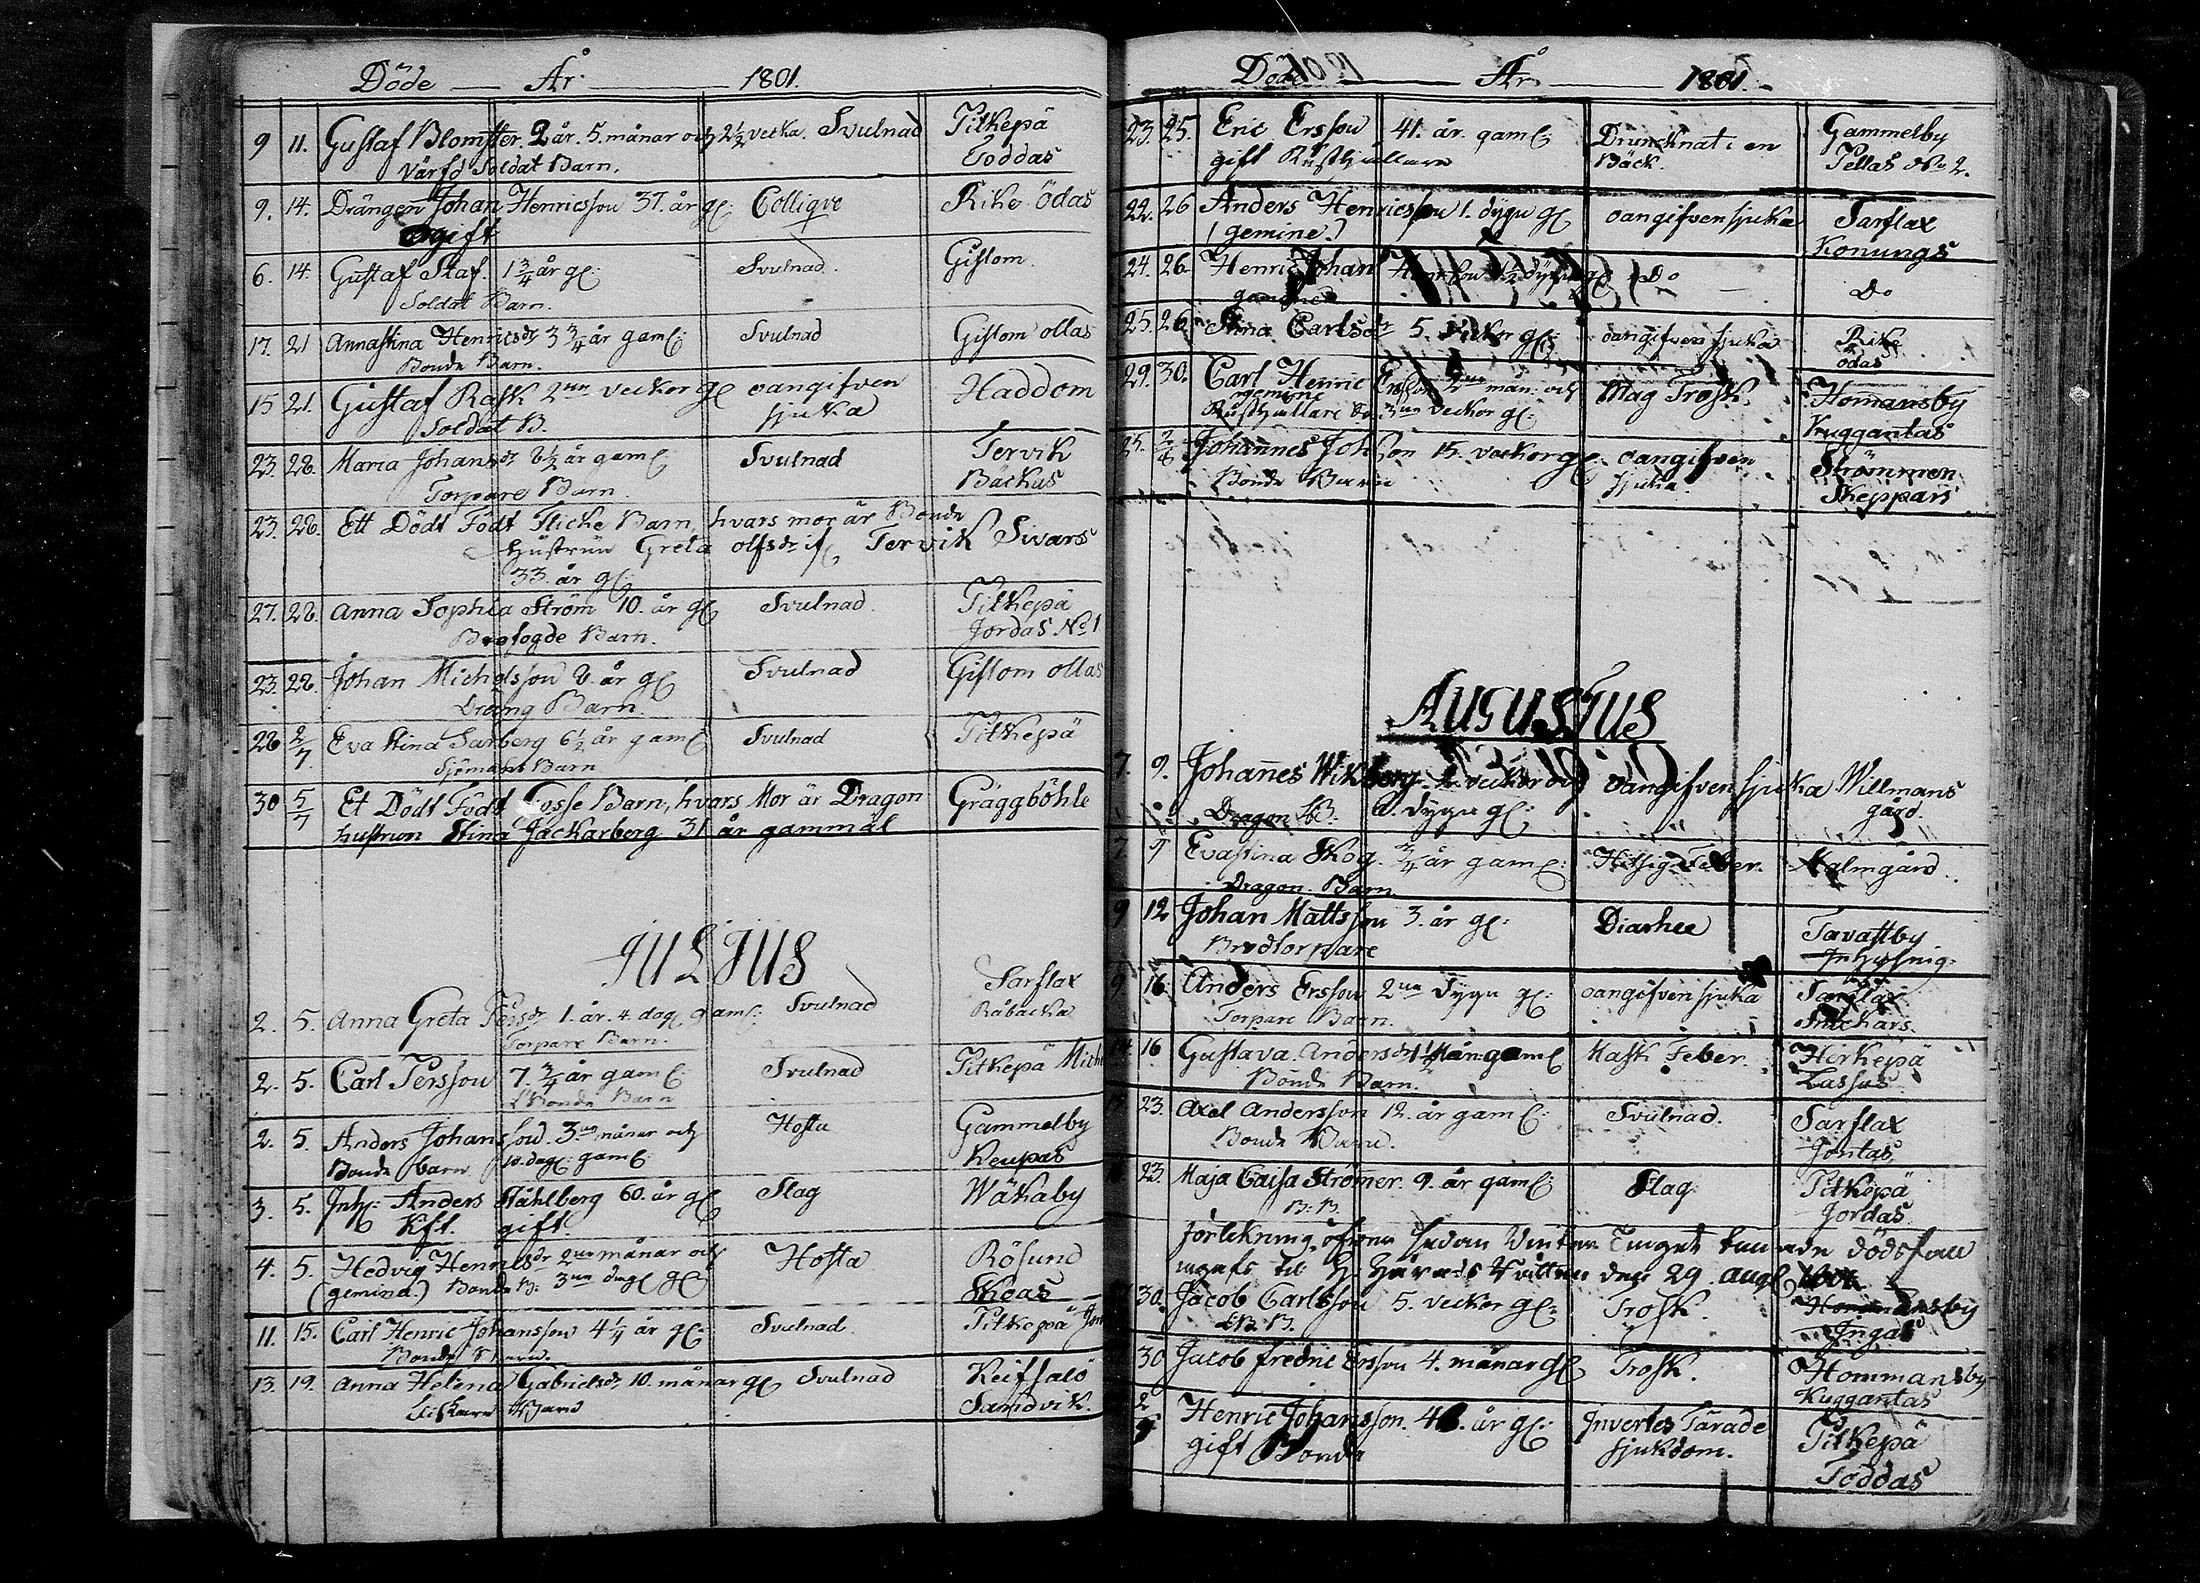 Döde År 1801.
9 11. Gustaf Blomster. 2 år. 5. månar och 2 1/2 vecka. Svulnad Pitkepä
Värfd Soldat Barn. Toddas
9. 14. Drängen Johan Henricsson 37. år gl: Collique Rike Ödas
ogift
6. 14. Gustaf Staf. 1 3/4 år gl: Svulnad. Gislom.
Soldat Barn.
17. 21 Annastina Henricsdr 3 3/4 år gaml: Svulnad Gislom ollas
Bonde Barn.
15 21. Gustaf Rask 2ne veckor gl oangifven Haddom
Soldat B. sjuka
23. 28. Maria Johansdr 6 1/2 år gaml: Svulnad Tervik
Torpare Barn Bäckus
23. 28. Ett Dödt Födt Flicke Barn, hvars mor är Bonde
Hustrun Greta olfsdr if Tervik Sivars
33. år gl:
27. 28. Anna Sophia Ström 10. år gl Svulnad. Pitkepä
Brofogde Barn. Jordas No 1
23. 28. Johan Michelsson 6. år gl Svulnad Gislom ollas
Dräng Barn.
28 2/7. Eva Stina Sarberg 6 1/2 år gaml Svulnad Pitkepä
Sjömans Barn
30 5/7 Et Dödt Födt Gosse Barn, hvars Mor är Dragon Gräggböhle
hustrun Stina Jackarberg 31 år gammal
JULIUS
2. 5. Anna Greta Persdr 1. år. 4. dag. gaml: Svulnad Sarflax
Torpare Barn. Råbacka
2. 5. Carl Persson 7. 3/4 år gaml: Svulnad Pitkepä Mich
Bonde Barn
2. 5. Anders Johansson. 3ne månar och Hosta Gammelby
Bonde barn 10. dag: gaml: Keupas
3. 5. Inh: Anders Ståhlberg 60. år gl Slag Wåkaby
Kft. gift.
4. 5. Hedvig Henricsdr 2ne månar och Hosta Rösund
(gemina.) Bonde B. 3ne dag gl Skeas
11. 15. Carl Henric Johansson 4 1/4 år gl: Svulnad. Pitkepä
Bonde Barn.
13. 19. Anna Helena Gabrielsdr 10. månar gl Svulnad Keifsalö
Barn Sandvik.
Döde År 1801.
23. 25. Eric Ersson 41. år. gaml: Druncknat i en Gammelby
gift Rusthållare Bäck. Pellas No 2.
22. 26 Anders Henricsson 1. dygn gl oangifven sjuka Sarflax
(gemine.) Konungs
24. 26. Henric Johan Do Do
25. 26 Stina Carlsdr 5. veckor gl: oangifven sjuka Rike
ödas
29. 30. Carl Henric Ersson 2ne mån: och Mag Trosk. Homansby
gemine
Rusthållare 3ne veckor gl: Kuggantas
25. 2/8 Johannes Johsson 15. veckor gl: oangifven Strömmen
Bonde Barn sjuka. Skeppars
AUGUSTUS
7. 9. Johannes Wikberg veckor och oangifven sjuka Willmans
Dragon B. 6. dygn gl: gård.
7 9 Evastina Skog. 3/4 år gaml: Hitsig Feber. Malmgård
Dragon. Barn
9 12 Johan Mattsson 3. år gl: Diarhee Tavastby
9 16. Anders Ersson 2ne dygn gl: oangifven sjuka Sarflax
Torpare Barn.
16 Gustava Andersdr 1 1/2 Mån: gaml Mask Feber. Hirkepä
Bonde Barn. Lassas
23. Axel Andersson 12. år gaml: Svulnad. Sarflax
Bonde Barn. Jontas
23. Maja Caisa Strömer. 9. år gaml: Slag Pitkepä
B: B. Jordas
Förtekning öfver sedan Vinter Tinget timade dödsfall
ingafs til H. Härads den 29. Aug 1801.
30. Jacob Carlsson 5. veckor gl: Trosk. Hommansby
B. B. Ingas
30 Jacob fredric Ersson 4. månar gl Trosk. Hommansby
Kuggantas
2/9 Henric Johansson. 46. år gl: Invertes Tärade Pitkepä
gift Bonde sjukdom. Toddas